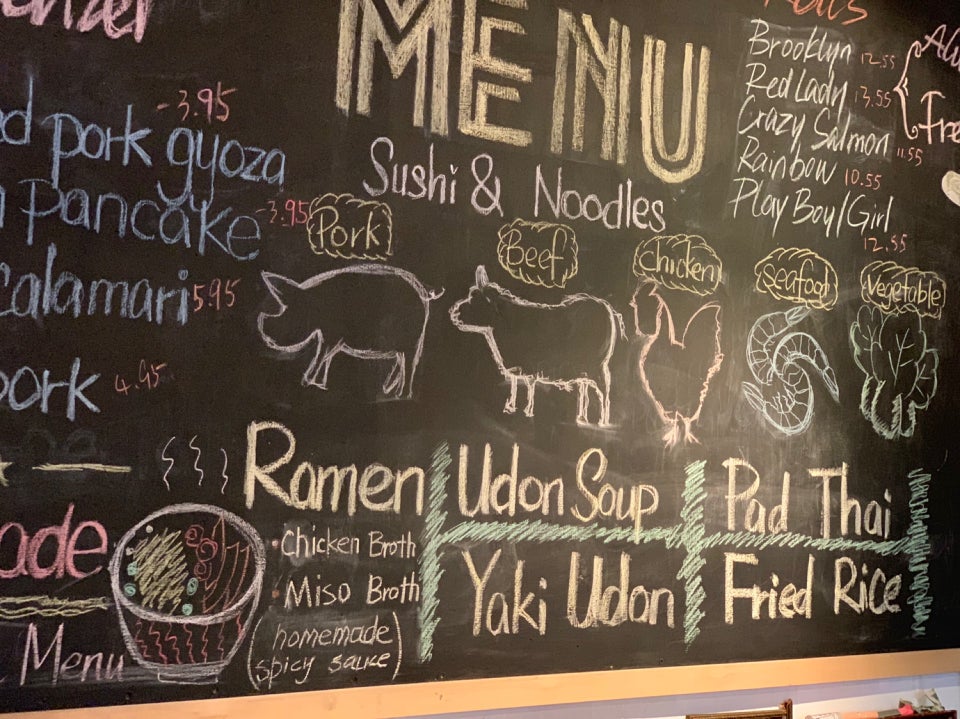 MENU
Sushi & Noodles
-3.95
pork gyoza
Pancake -3.95
Calamari 5.95
pork 4.95
Brooklyn 12.55
Red Lady 13.55
Crazy Salmon 11.55
Rainbow 10.55
Play Boy/Girl
12.55
Pork
Beef
chicken
seafood
vegetable
Ramen
• Chicken Broth
• Miso Broth
(homemade
spicy sauce)
Udon Soup
Pad Thai
Yaki Udon
Fried Rice
Menu